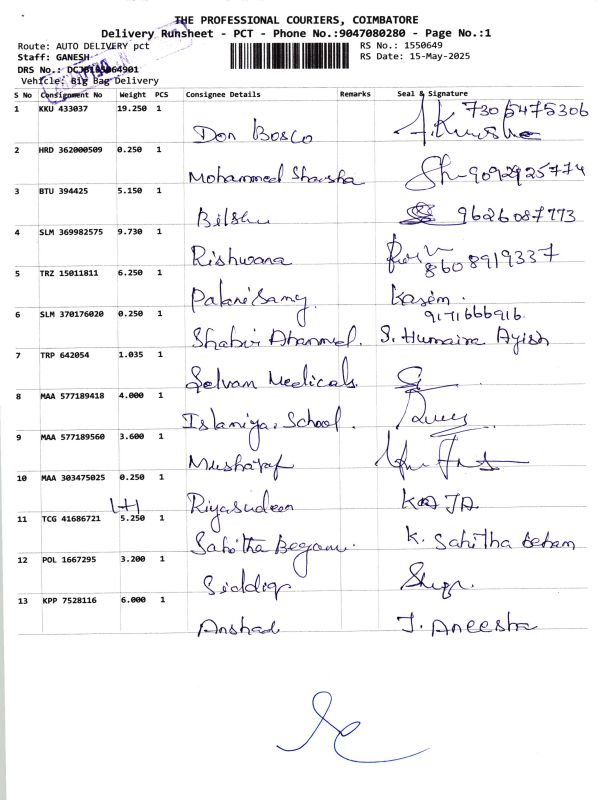 THE PROFESSIONAL COURIERS, COIMBATORE
Delivery Runsheet - PCT - Phone No.:9047080280 - Page No.:1
Route: AUTO DELIVERY pct
RS No.: 1550649
Staff: GANESH
RS Date: 15-May-2025
DRS No.:
Vehicle: Big Bag Delivery
S No Consignment No Weight PCS Consignee Details Remarks Seal & Signature
1 KKU 433037 19.250 1 Don Bosco 7305475306
2 HRD 362000509 0.250 1 Mohammed 9092925774
3 BTU 394425 5.150 1 9626087773
4 SLM 369982575 9.730 1 Rishwana 8608919337
5 TRZ 15011811 6.250 1 Palanisamy. Kasem.
9171666916.
6 SLM 370176020 0.250 1 Shabir Ahammed. S. Humaira Ayish
7 TRP 642054 1.035 1 Selvan Medicals.
8 MAA 577189418 4.000 1 Islamiya. School.
9 MAA 577189560 3.600 1 Musharaf
10 MAA 303475025 0.250 1 Riyasudeen KAJA.
1+1
11 TCG 41686721 5.250 1 Sahitha Begam. K. Sahitha Beham
12 POL 1667295 3.200 1 Siddiq
13 KPP 7528116 6.000 1 Arshad J. Aneesha